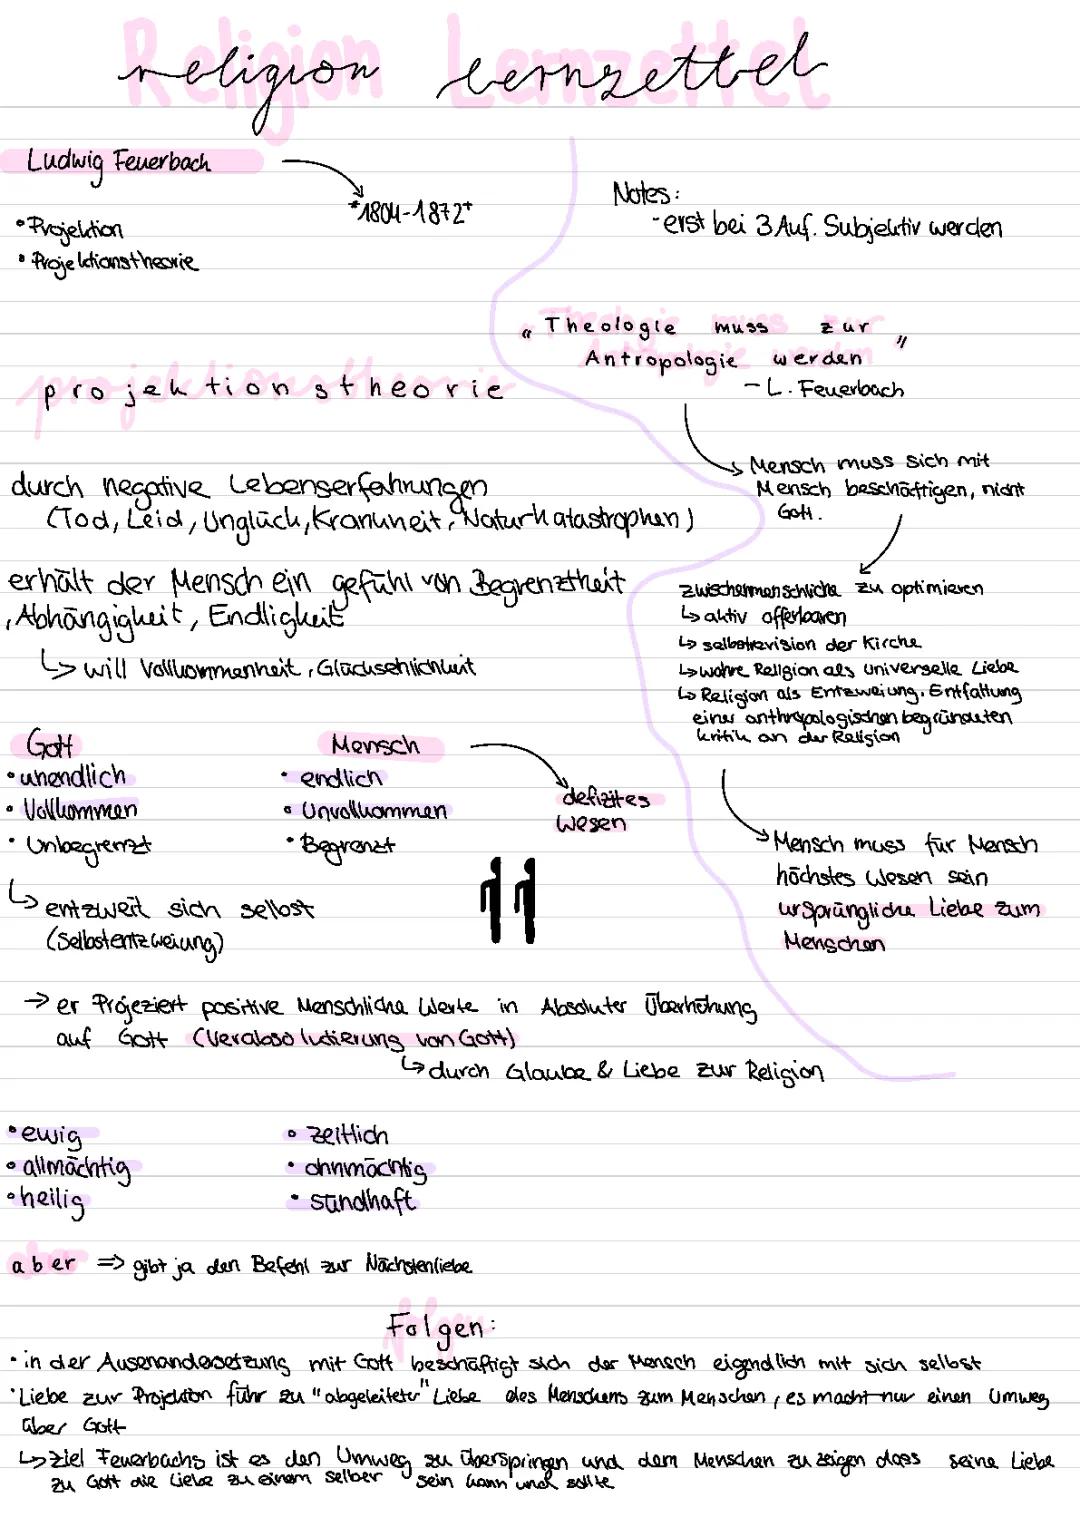 Religion Lernzettel
Ludwig Feuerbach
*1804-1872+
• Projektion
• Projektionstheorie
Notes:
- erst bei 3 Auf. Subjektiv werden
"Theologie muss zur
Antropologie werden"
- L. Feuerbach
projektionstheorie
↳ Mensch muss sich mit
Mensch beschäftigen, nicht
Gott.
durch negative Lebenserfahrungen
(Tod, Leid, Unglück, Krankheit, Naturkatastrophen)
erhält der Mensch ein gefühl von Begrenztheit
, Abhängigkeit, Endligkeit
↳ will Vollkommenheit, Glücksehlichkeit
zwischenmenschliche zu optimieren
↳ aktiv offenbaren
↳ selbstrevision der Kirche
↳ wahre Religion als universelle Liebe
↳ Religion als Entzweiung. Entfaltung
einer anthropologischen begründeten
kritik an der Religion
Gott
• unendlich
• Vollkommen
• Unbegrenzt
Mensch
• endlich
• Unvollkommen
• Begrenzt
defizites
wesen
↳ entzweit sich selbst
(Selbstentzweiung)
Mensch muss für Mensch
höchstes Wesen sein
ursprüngliche Liebe zum
Menschen
→ er Projeziert positive Menschliche Werte in Absoluter Überhöhung
auf Gott (Verabsolutierung von Gott)
↳ durch Glaube & Liebe zur Religion
• ewig
• allmächtig
• heilig
• zeitlich
• ohnmächtig
• sündhaft
aber => gibt ja den Befehl zur Nächstenliebe
Folgen:
• in der Ausenandersetzung mit Gott beschäftigt sich der Mensch eigendlich mit sich selbst
• Liebe zur Projektion führ zu "abgeleiteter" Liebe des Menschens zum Menschen, es macht nur einen Umweg
über Gott
↳ ziel Feuerbachs ist es den Umweg zu überspringen und dem Menschen zu zeigen dass seine Liebe
zu Gott die Liebe zu einem selber sein kann und sollte